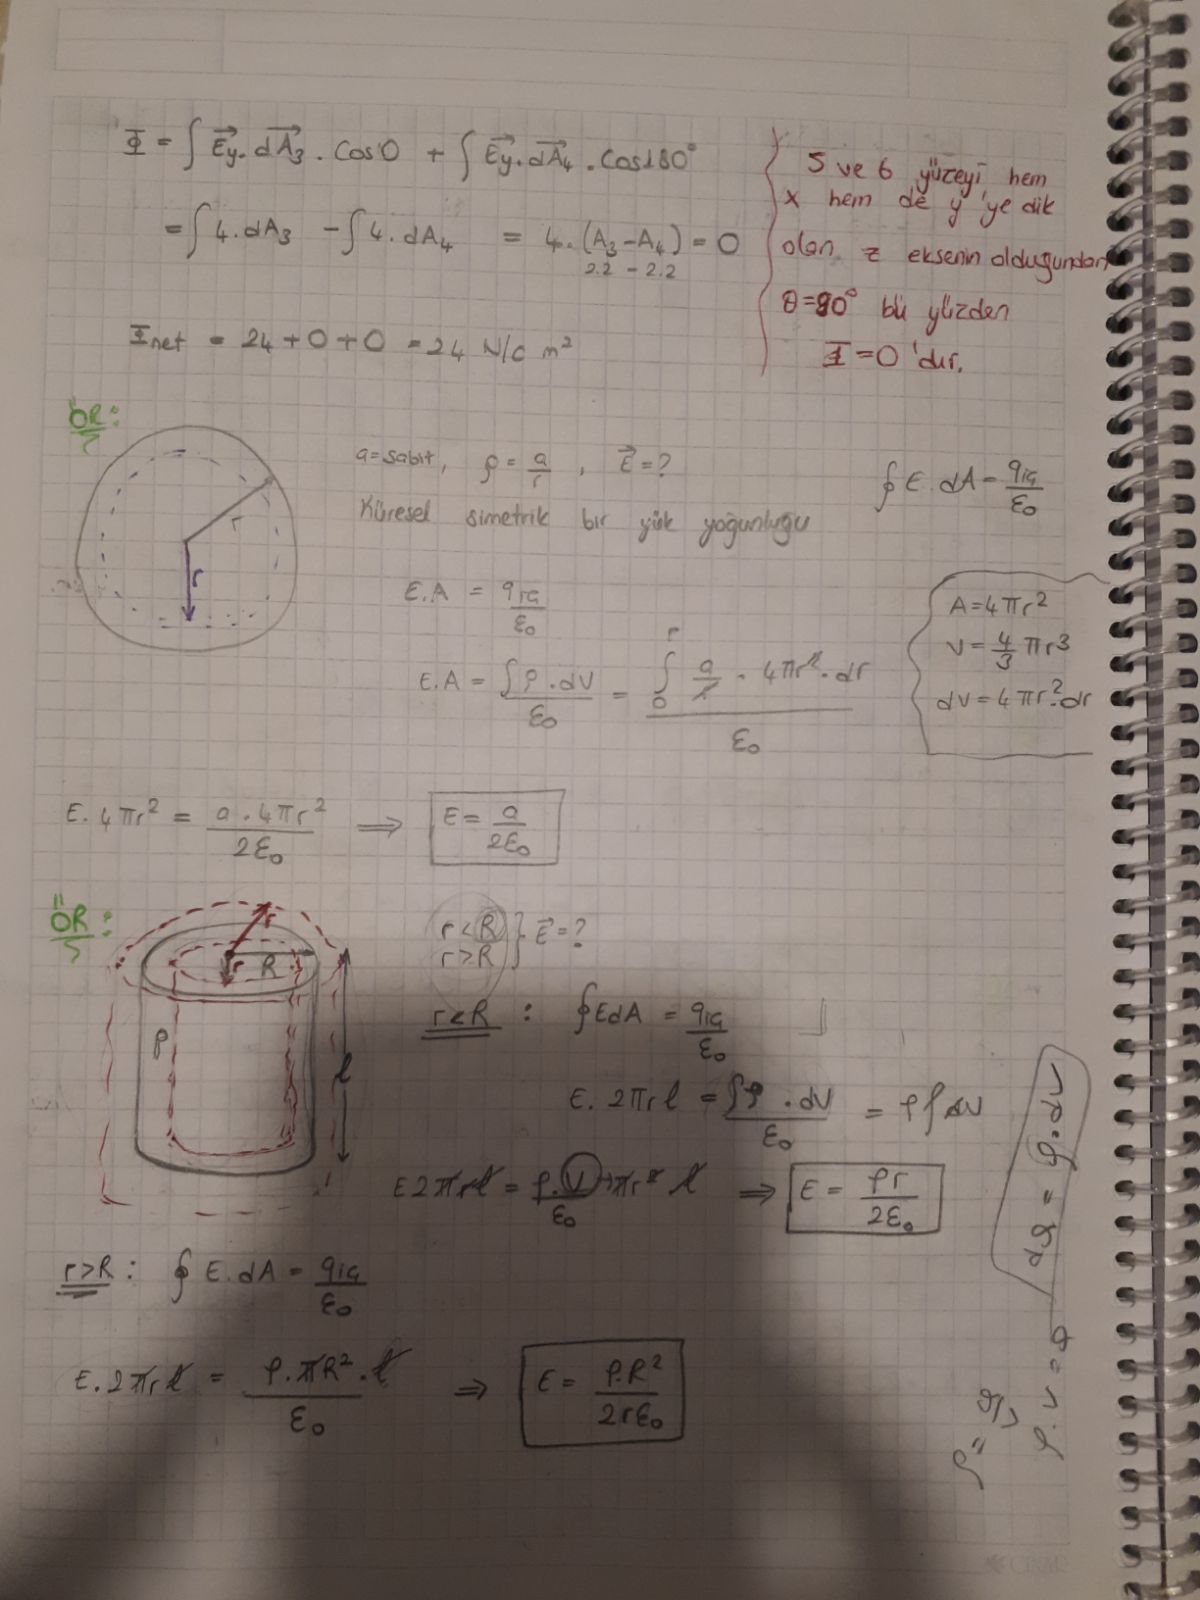 Φ = ∫ E⃗y. dA⃗3 . Cos0 + ∫ E⃗y. dA⃗4 . Cos180°
= ∫ 4.dA3 - ∫ 4. dA4 = 4.(A3-A4) = 0
2.2 - 2.2
Φnet = 24+0+0 = 24 N/C m²
5 ve 6 yüzeyi hem
x hem de y'ye dik
olan z eksenin olduğundan
θ=90° bu yüzden
Φ=0 'dır.
ÖR:
r
r
a=sabit, ρ = a/r , E⃗=?
Küresel simetrik bir yük yoğunluğu
∮ E. dA = qiç/ε0
E.A = qiç/ε0
E.A = ∫ρ.dV/ε0 = ∫0^r a/r . 4πr². dr / ε0
A=4πr²
V=4/3 πr³
dV=4πr².dr
E. 4πr² = a.4πr²/2ε0 ⇒ E= a/2ε0
ÖR:
r
r
R
ρ
l
r<R
r>R } E⃗=?
r<R : ∮EdA = qiç/ε0
E. 2πrl = ∫ρ.dV/ε0 = ρ∫dV
E2πrl = ρ.V/ε0 → πr² l ⇒ E = ρr/2ε0
r>R : ∮ E.dA = qiç/ε0
E.2πrl = ρ.πR².l/ε0 ⇒ E = ρ.R²/2rε0
dQ = ρ.dV
ρ.V = Q
ρ = Q/V